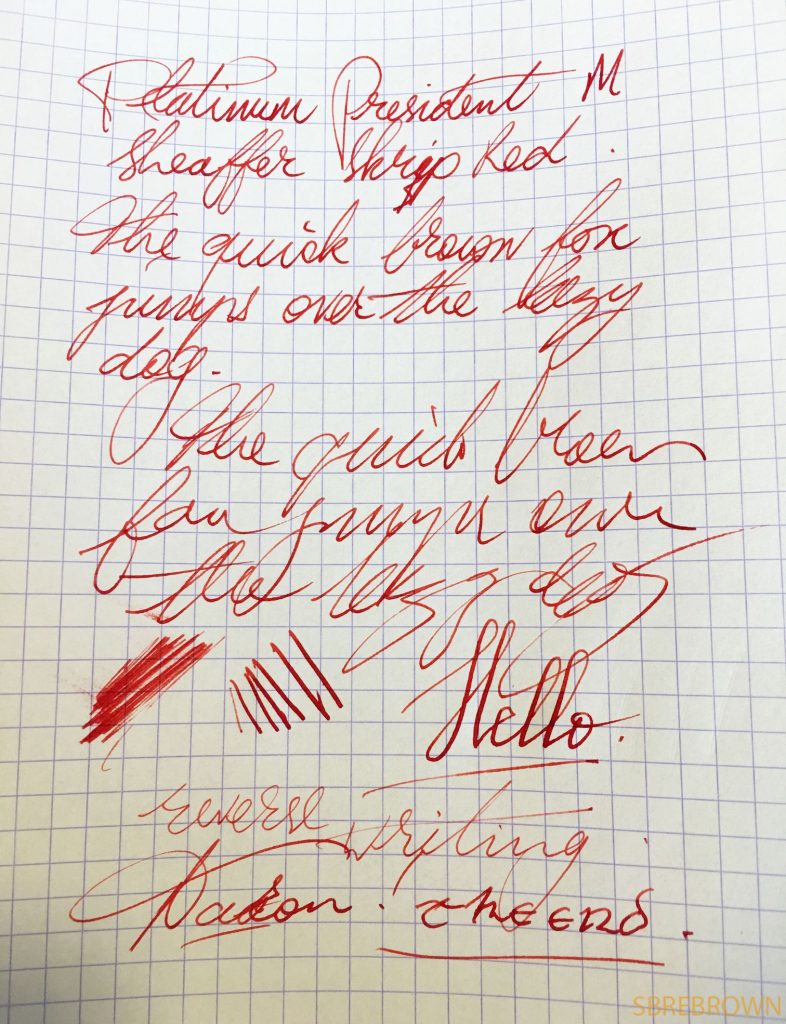 Platinum President M
Sheaffer Skrip Red.
the quick brown fox
jumps over the lazy
dog.
the quick brown
fox jumps over
the lazy dog
Hello.
reverse writing.
cheers.
SBREBROWN